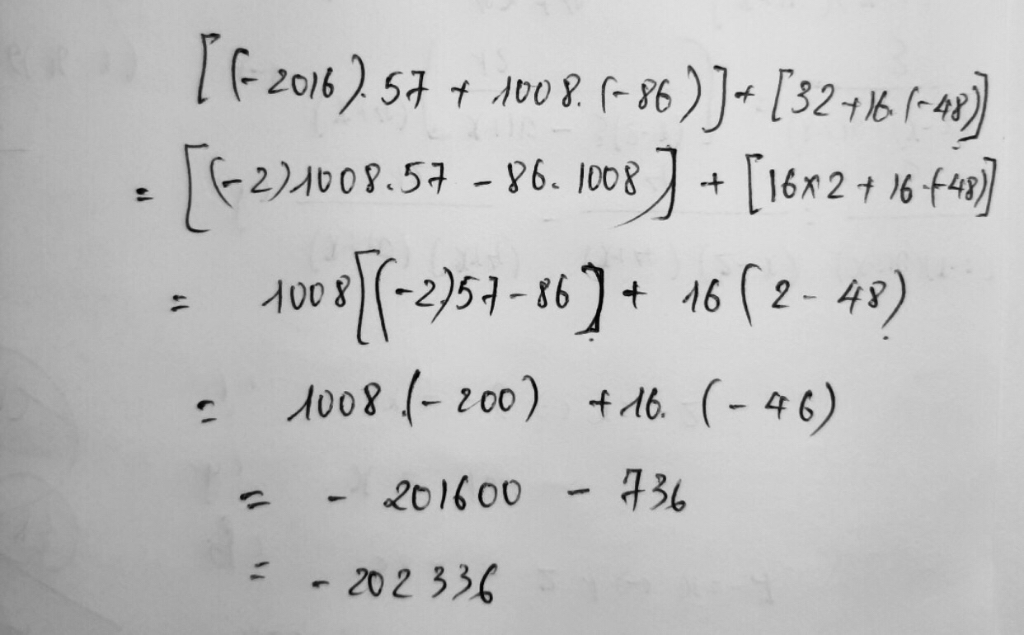 [(-2016). 57 + 1008. (-86)] + [32 + 16. (-48)]
= [(-2)1008.57 - 86. 1008] + [16x2 + 16.(-48)]
= 1008[(-2)57-86] + 16(2-48)
= 1008.(-200) + 16. (-46)
= - 201600 - 736
= - 202 336